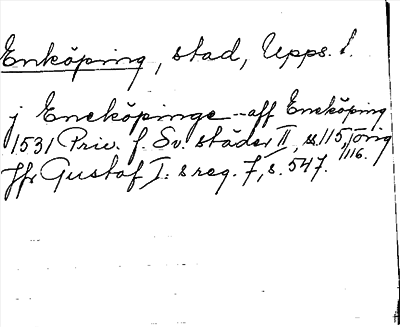 Enköping, stad, Upps. l.
j Eneköpinge - aff Eneköping
1531 Priv. f. Sv. städer II, s. 115, 116. orig
Jfr Gustaf I:s reg. 7, s. 547.